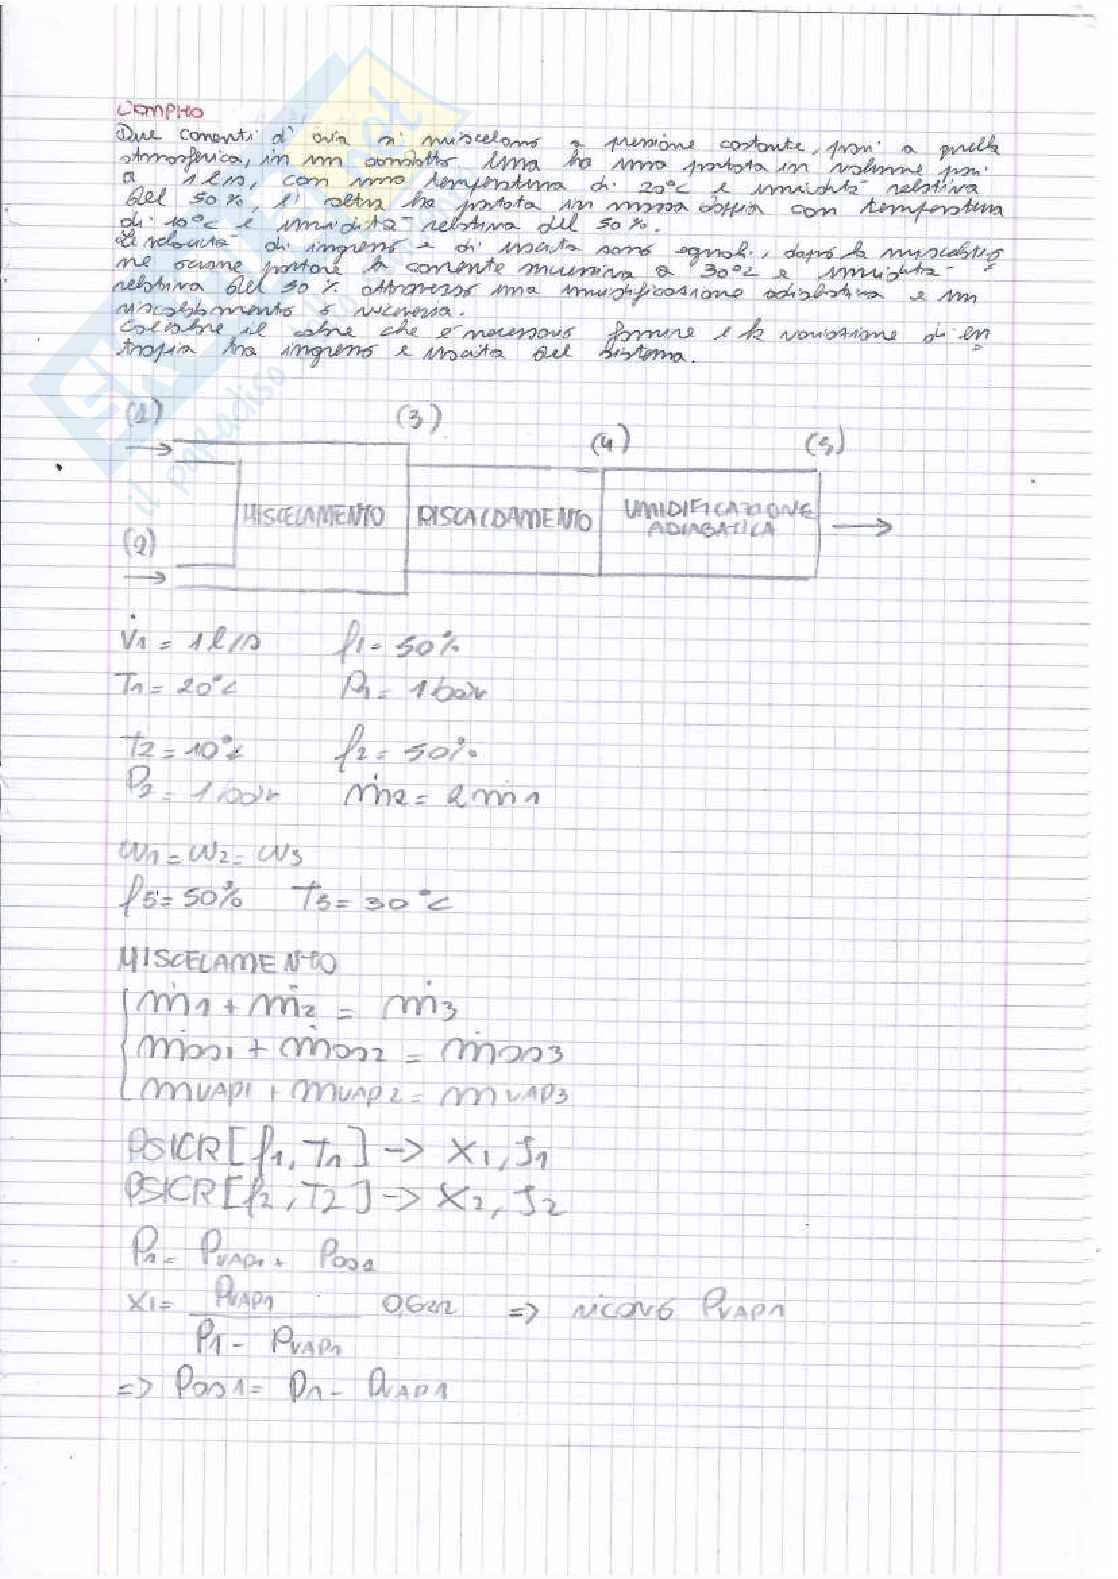 COMPITO
Due correnti d'aria si miscelano a pressione costante, pari a quella
atmosferica, in un condotto. Una ha una portata in volume pari
a 1 l/s, con una temperatura di 20°C e umidità relativa
del 50%, l'altra ha portata in massa doppia con temperatura
di 10°C e umidità relativa del 50%.
Le velocità di ingresso e di uscita sono eguali, dopo la miscelazio
ne occorre portare la corrente a 30°C e umidità
relativa del 50% attraverso una umidificazione adiabatica e un
riscaldamento o viceversa.
il calore che è necessario fornire e la variazione di en
tropia tra ingresso e uscita del sistema.
(1)
(3)
(4)
(5)
MISCELAMENTO
RISCALDAMENTO
UMIDIFICAZIONE
ADIABATICA
(2)
V̇1 = 1 l/s φ1 = 50%
T1 = 20°C P1 = 1 bar
T2 = 10°C φ2 = 50%
P2 = 1 bar ṁ2 = 2 ṁ1
w1 = w2 = w3
φ5 = 50% T5 = 30°C
MISCELAMENTO
ṁ1 + ṁ2 = ṁ3
ṁas1 + ṁas2 = ṁas3
mVAP1 + mVAP2 = mVAP3
PSICR[φ1, T1] -> X1, J1
PSICR[φ2, T2] -> X2, J2
P1 = PVAP1 + Pas1
X1 = PVAP1 / (P1 - PVAP1) · 0,622 => RICAVO PVAP1
=> Pas1 = P1 - PVAP1